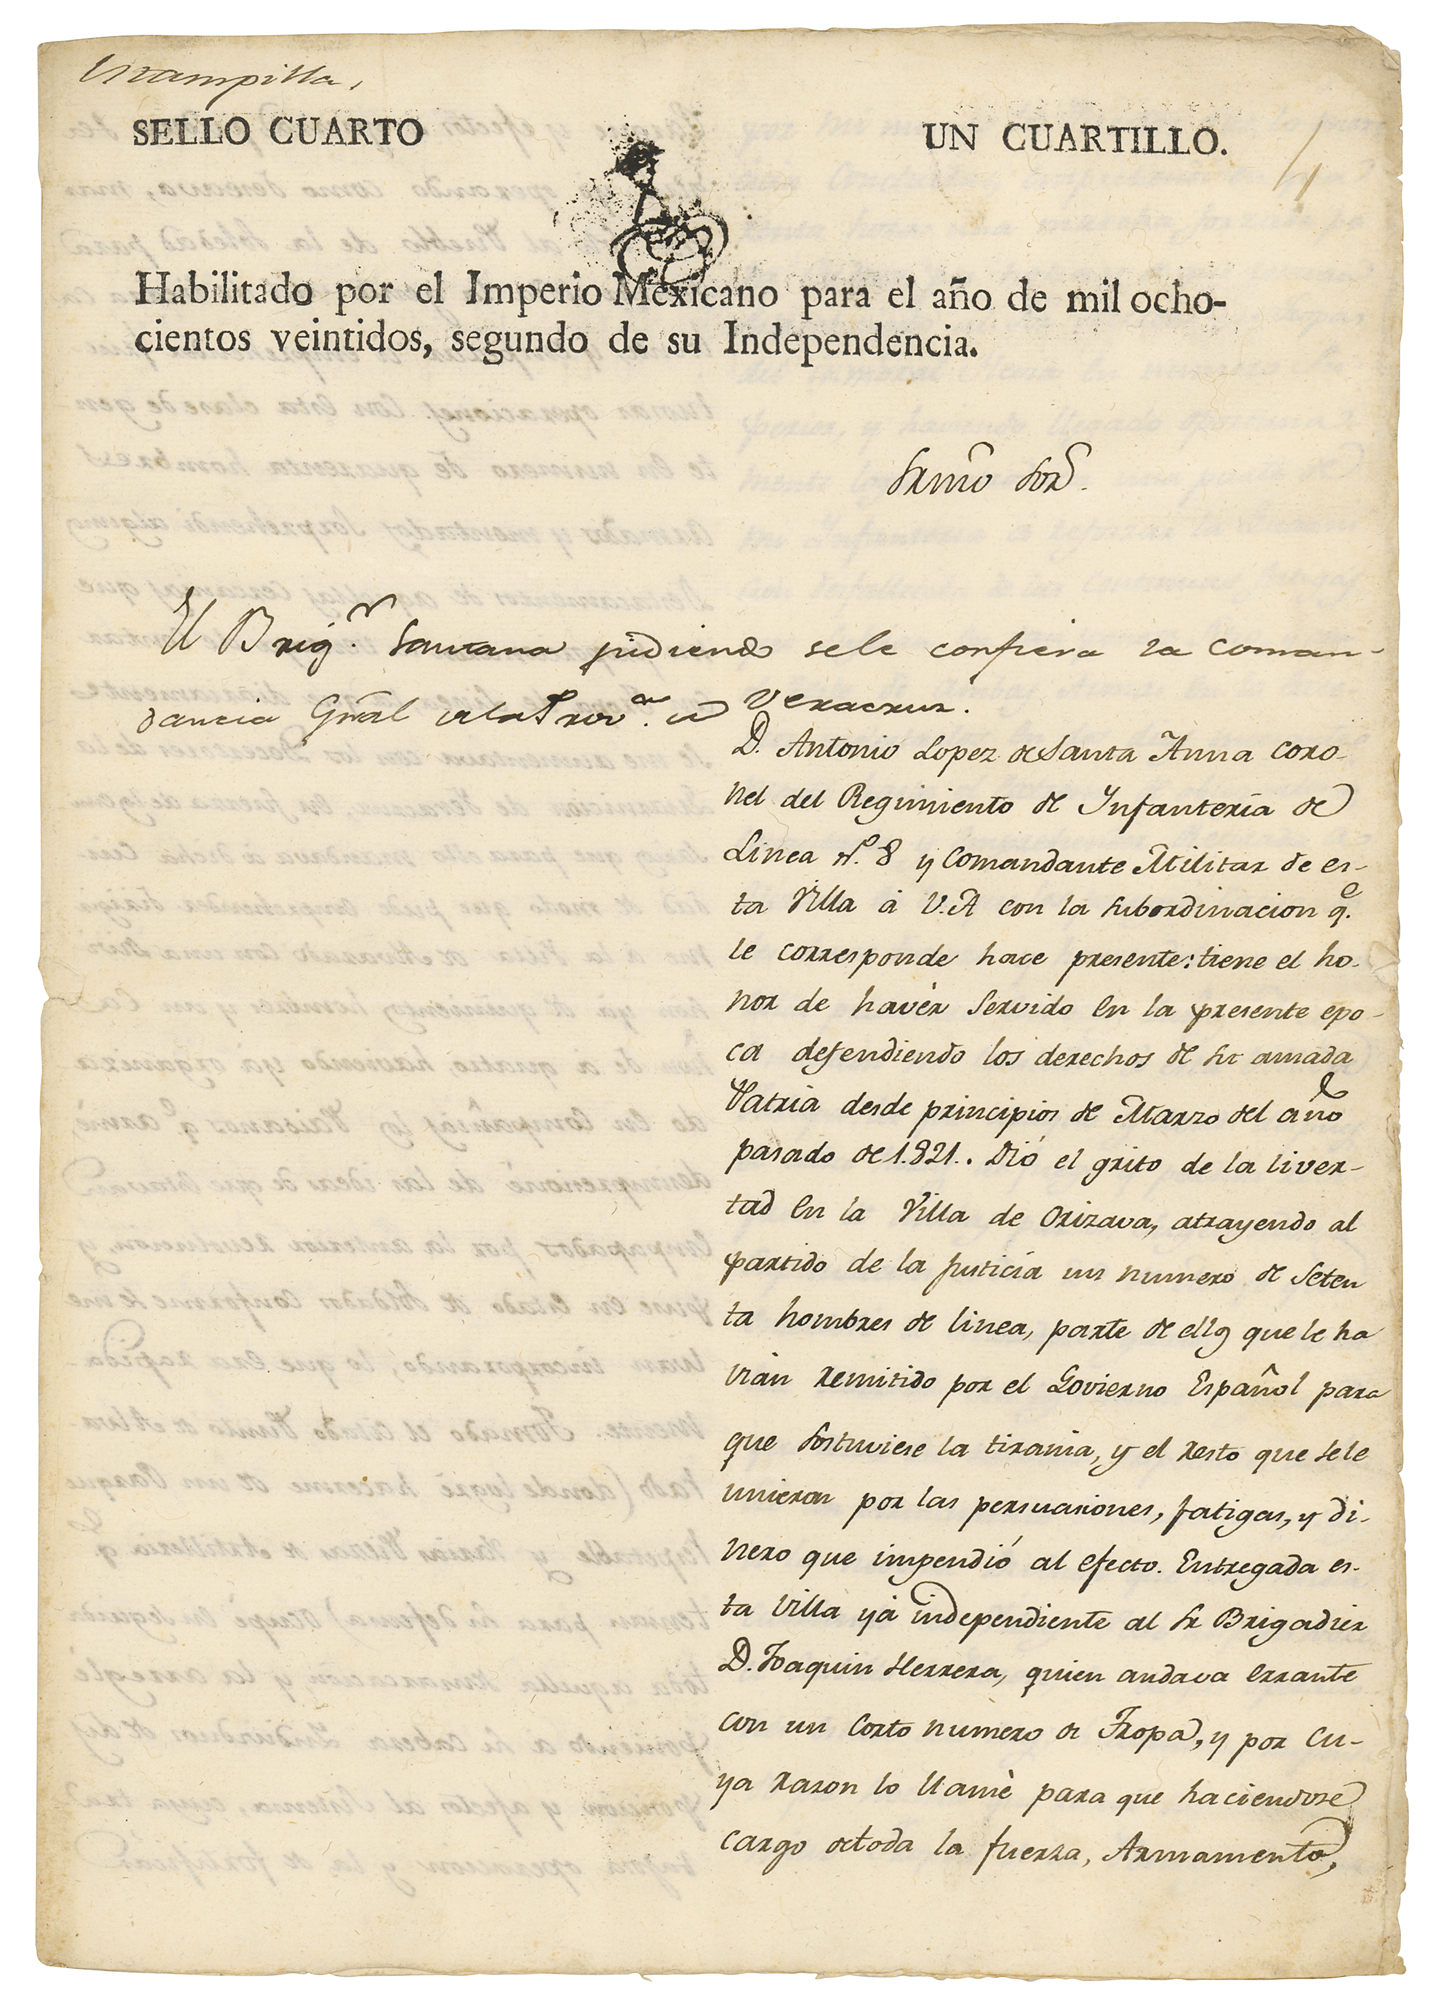 Estampilla.
SELLO CUARTO
UN CUARTILLO.
Habilitado por el Imperio Mexicano para el año de mil ocho-
cientos veintidos, segundo de su Independencia.
Srmo Sor.
El Brigr. Santana pidiendo sele confiera la Coman-
dancia Gral de la Prova. de Veracruz.
D. Antonio Lopez de Santa Anna Coro-
nel del Regimiento de Infanteria de
Linea No. 8 y Comandante Militar de es-
ta Villa á V.A con la subordinacion qe.
le corresponde hace presente: tiene el ho-
nor de havér servido en la presente epo-
ca defendiendo los derechos de su amada
Patria desde principios de Marzo del año
pasado de 1.821.. Dió el grito de la liver-
tad en la Villa de Orizava, atrayendo al
partido de la justicia un numero de seten
ta hombres de linea, parte de ellos que le ha
vian remitido por el Govierno Español para
que sostuviese la tirania, y el resto que sele
unieron por las persuasiones, fatigas, y di-
nero que impendió al efecto. Entregada es-
ta Villa yá independiente al Sr Brigadier
D. Joaquin Herrera, quien andava errante
con un corto numero de Tropa, y por cu-
ya razon lo llamè para que haciendose
cargo de toda la fuerza, Armamento,